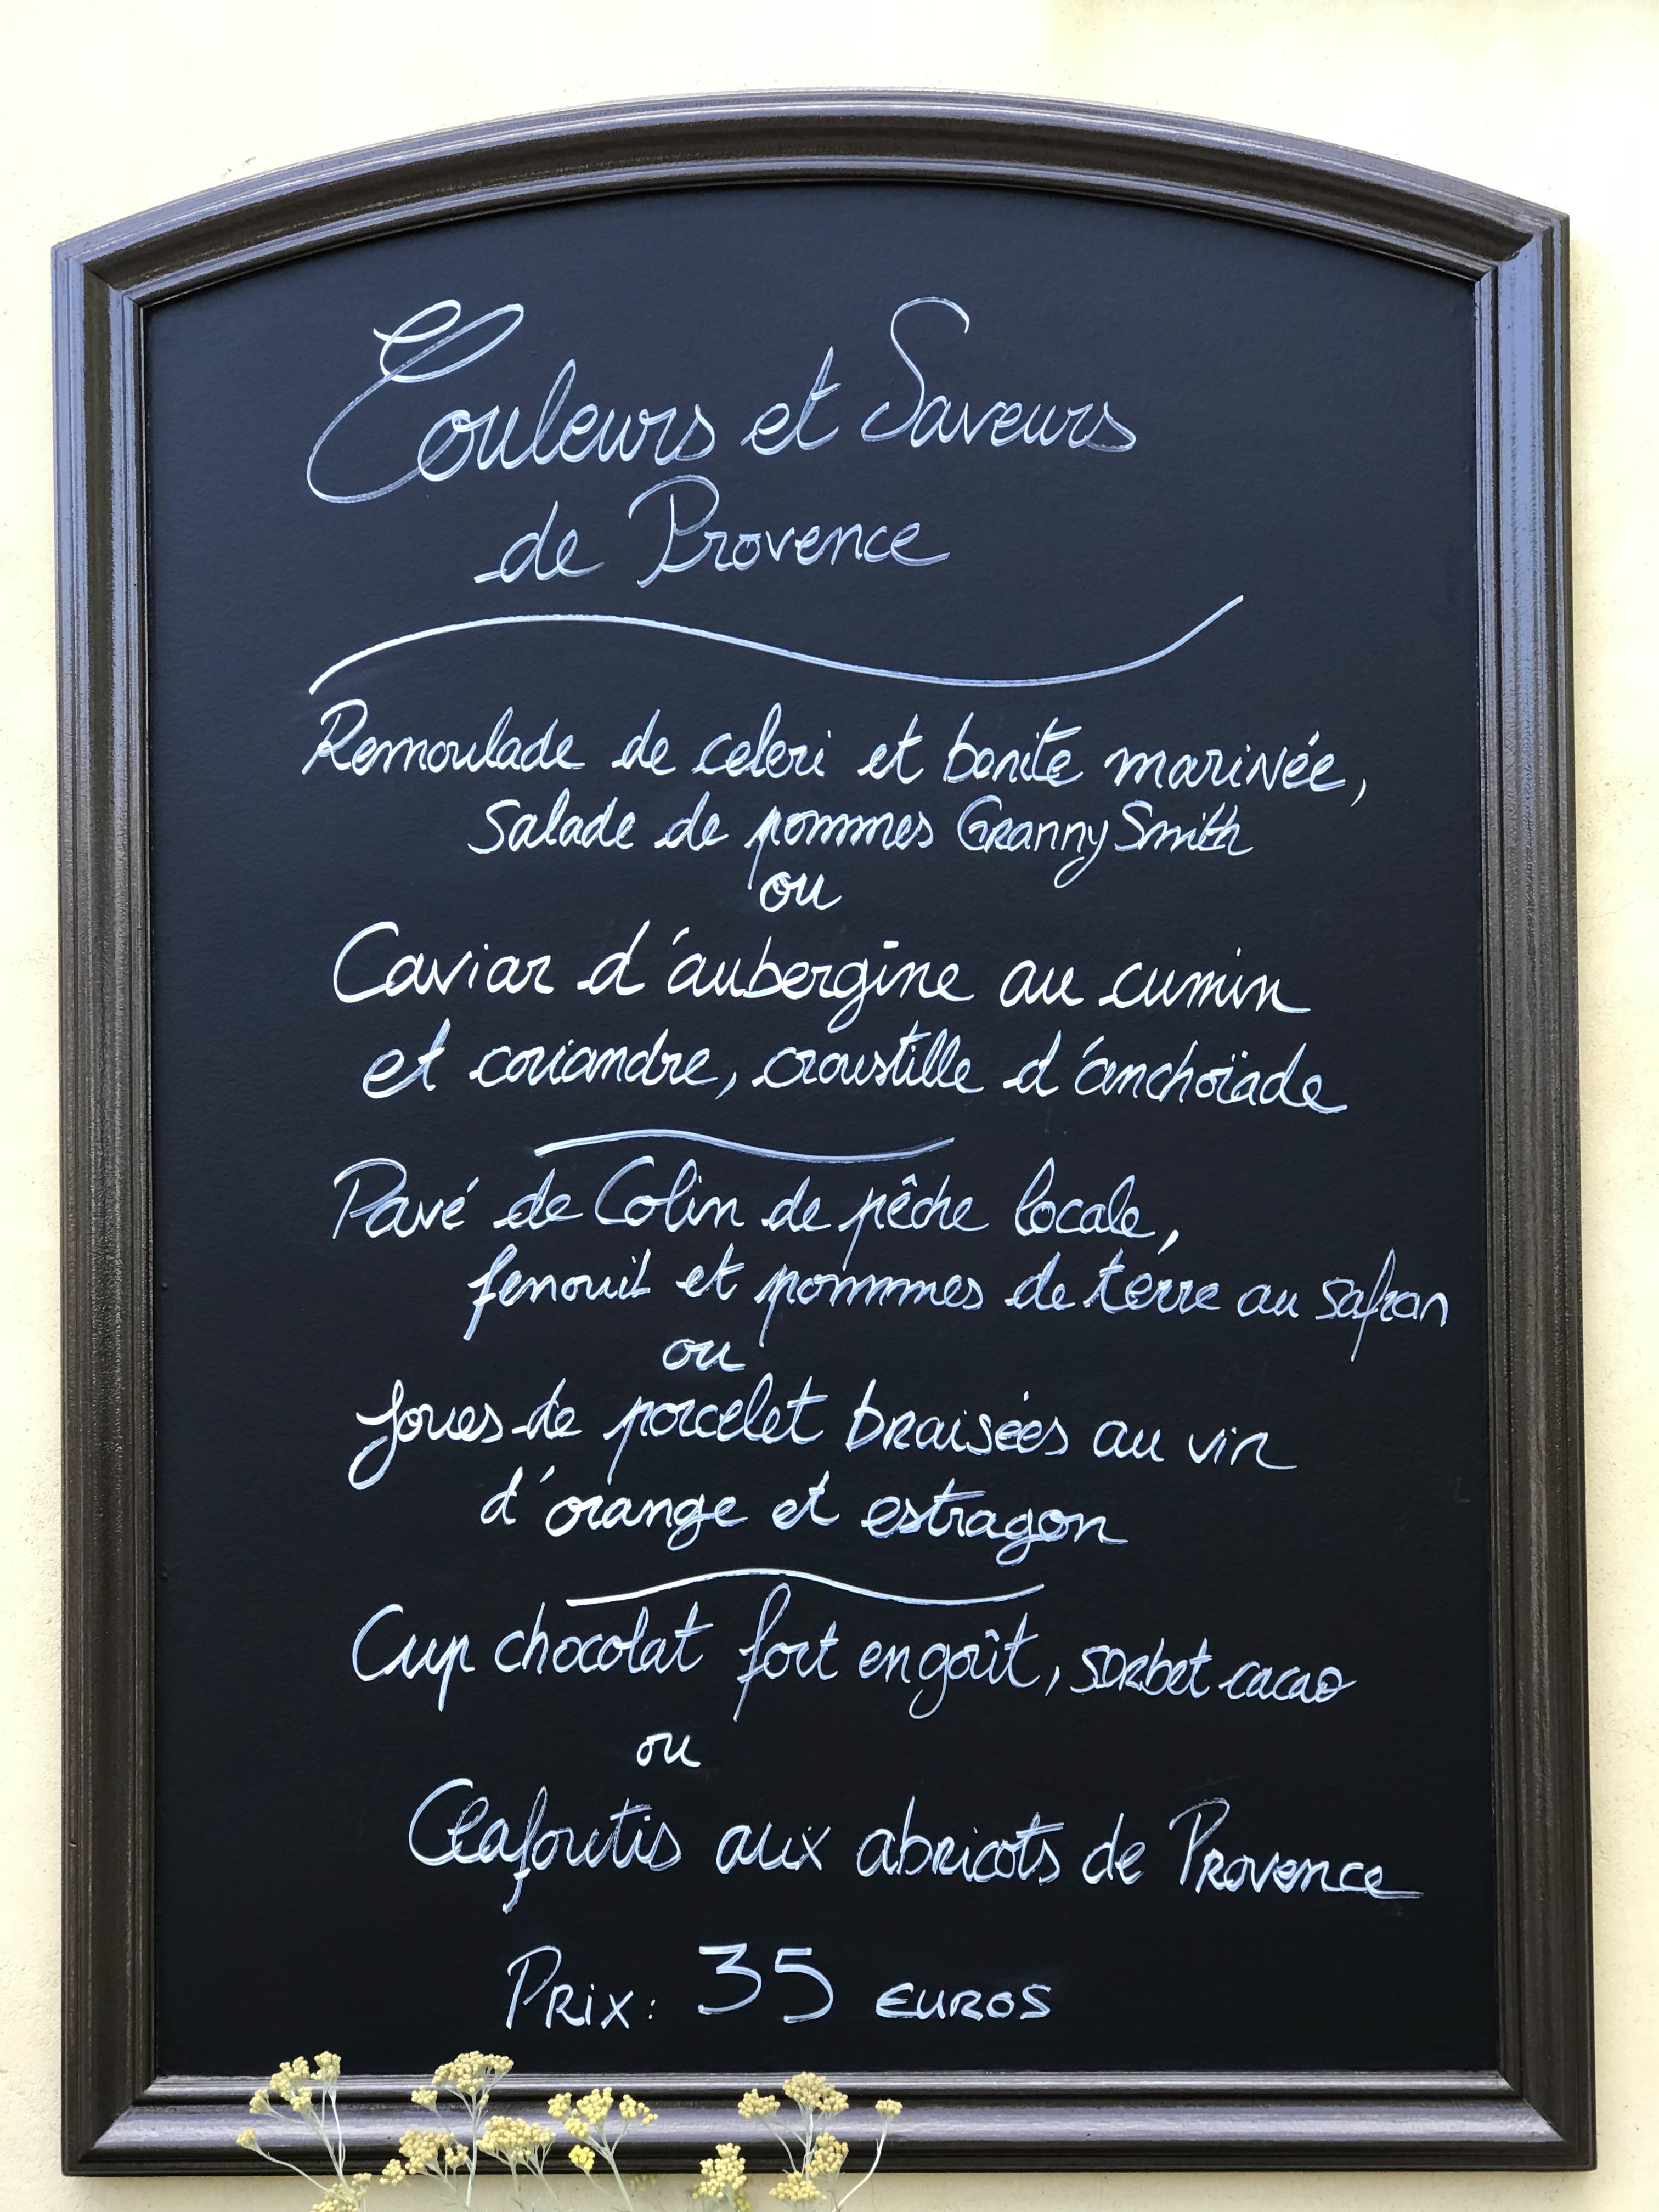 Couleurs et Saveurs
de Provence
Remoulade de celeri et bonite marinée,
Salade de pommes Granny Smith
ou
Caviar d'aubergine au cumin
et coriandre, croustille d'anchoïade
Pavé de Colin de pêche locale,
fenouil et pommmes de terre au safran
ou
Joues de porcelet braisées au vin
d'orange et estragon
Cup chocolat fort en goût, sorbet cacao
ou
Clafoutis aux abricots de Provence
Prix: 35 euros